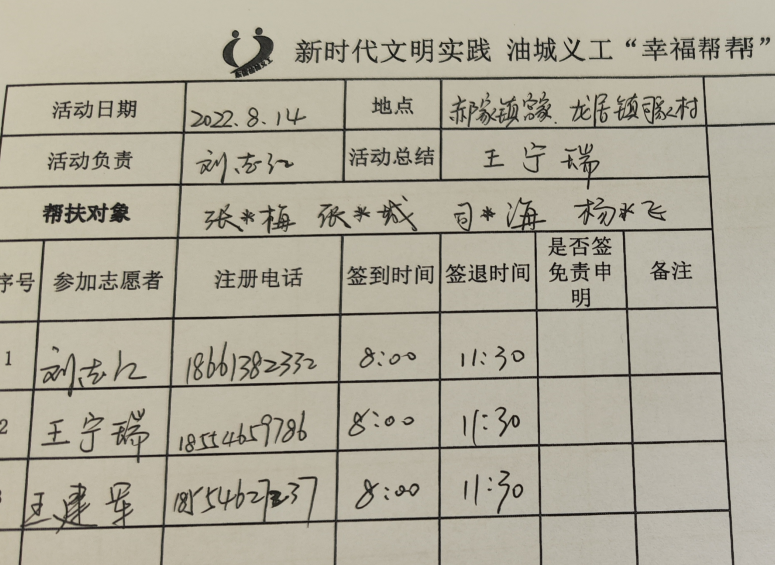 新时代文明实践 油城义工“幸福帮帮”
活动日期 2022.8.14 地点 郝家镇 龙居镇 村
活动负责 刘志江 活动总结 王宁瑞
帮扶对象 张*梅 张*城 司*海 杨*飞
序号 参加志愿者 注册电话 签到时间 签退时间 是否签免责申明 备注
1 刘志江 18661382332 8:00 11:30
2 王宁瑞 18554659786 8:00 11:30
王建军 8:00 11:30